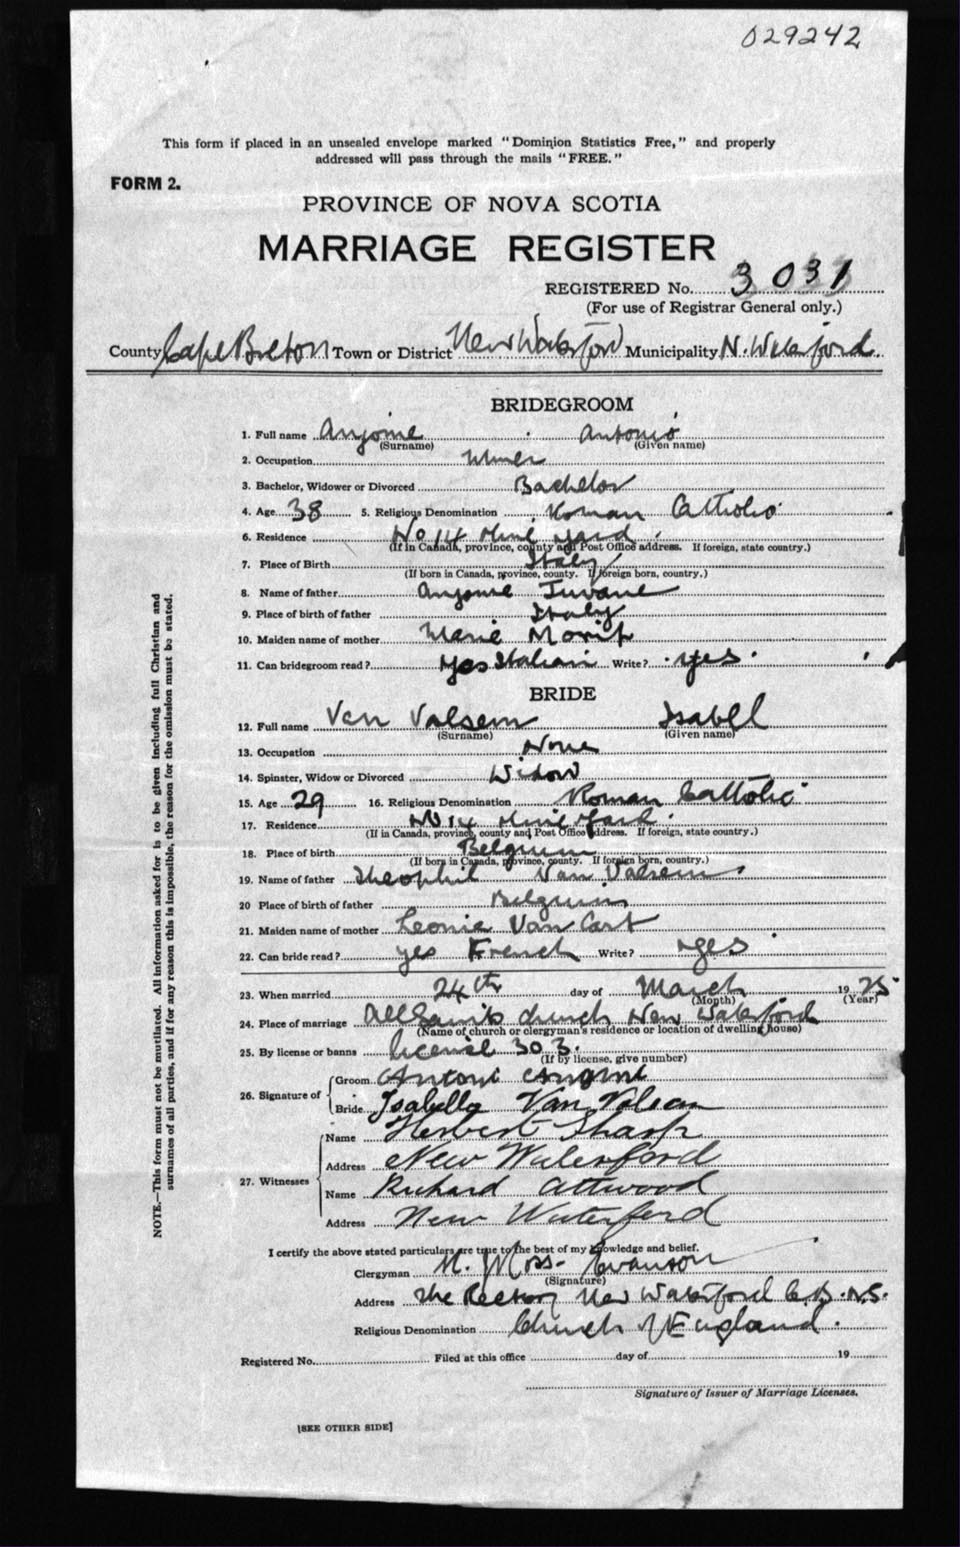 029242
This form if placed in an unsealed envelope marked "Dominion Statistics Free," and properly
addressed will pass through the mails "FREE."
FORM 2.
PROVINCE OF NOVA SCOTIA
MARRIAGE REGISTER
REGISTERED No. 3031
(For use of Registrar General only.)
County Cape Breton Town or District New Waterford Municipality N. Waterford
BRIDEGROOM
1. Full name Anjome Antonio
(Surname) (Given name)
2. Occupation Miner
3. Bachelor, Widower or Divorced Bachelor
4. Age 38 5. Religious Denomination Roman Catholic
6. Residence No 14 Mine Yard
(If in Canada, province, county and Post Office address. If foreign, state country.)
7. Place of Birth Italy
(If born in Canada, province, county. If foreign born, country.)
8. Name of father Anjome
9. Place of birth of father Italy
10. Maiden name of mother Marie
11. Can bridegroom read? Yes Italian Write? yes
BRIDE
12. Full name Van Valsem Isabel
(Surname) (Given name)
13. Occupation None
14. Spinster, Widow or Divorced Widow
15. Age 29 16. Religious Denomination Roman Catholic
17. Residence No 14 Mine Yard
(If in Canada, province, county and Post Office address. If foreign, state country.)
18. Place of birth Belgium
(If born in Canada, province, county. If foreign born, country.)
19. Name of father Theophil Van Valsem
20 Place of birth of father Belgium
21. Maiden name of mother Leonie Van Cart
22. Can bride read? yes French Write? yes
23. When married 24th day of March 1925
(Month) (Year)
24. Place of marriage All Saints church New Waterford
(Name of church or clergyman's residence or location of dwelling house)
25. By license or banns license 303.
(If by license, give number)
26. Signature of Groom Antoni
Bride Isabella Van
27. Witnesses Name Herbert Sharp
Address New Waterford
Name Richard Attwood
Address New Waterford
I certify the above stated particulars are true to the best of my knowledge and belief.
Clergyman
(Signature)
Address The Rectory New Waterford C.B. N.S.
Religious Denomination Church of England.
Registered No. Filed at this office day of 19
Signature of Issuer of Marriage Licenses.
[SEE OTHER SIDE]
NOTE.—This form must not be mutilated. All information asked for is to be given including full Christian and
surnames of all parties, and if for any reason this is impossible, the reason for the omission must be stated.